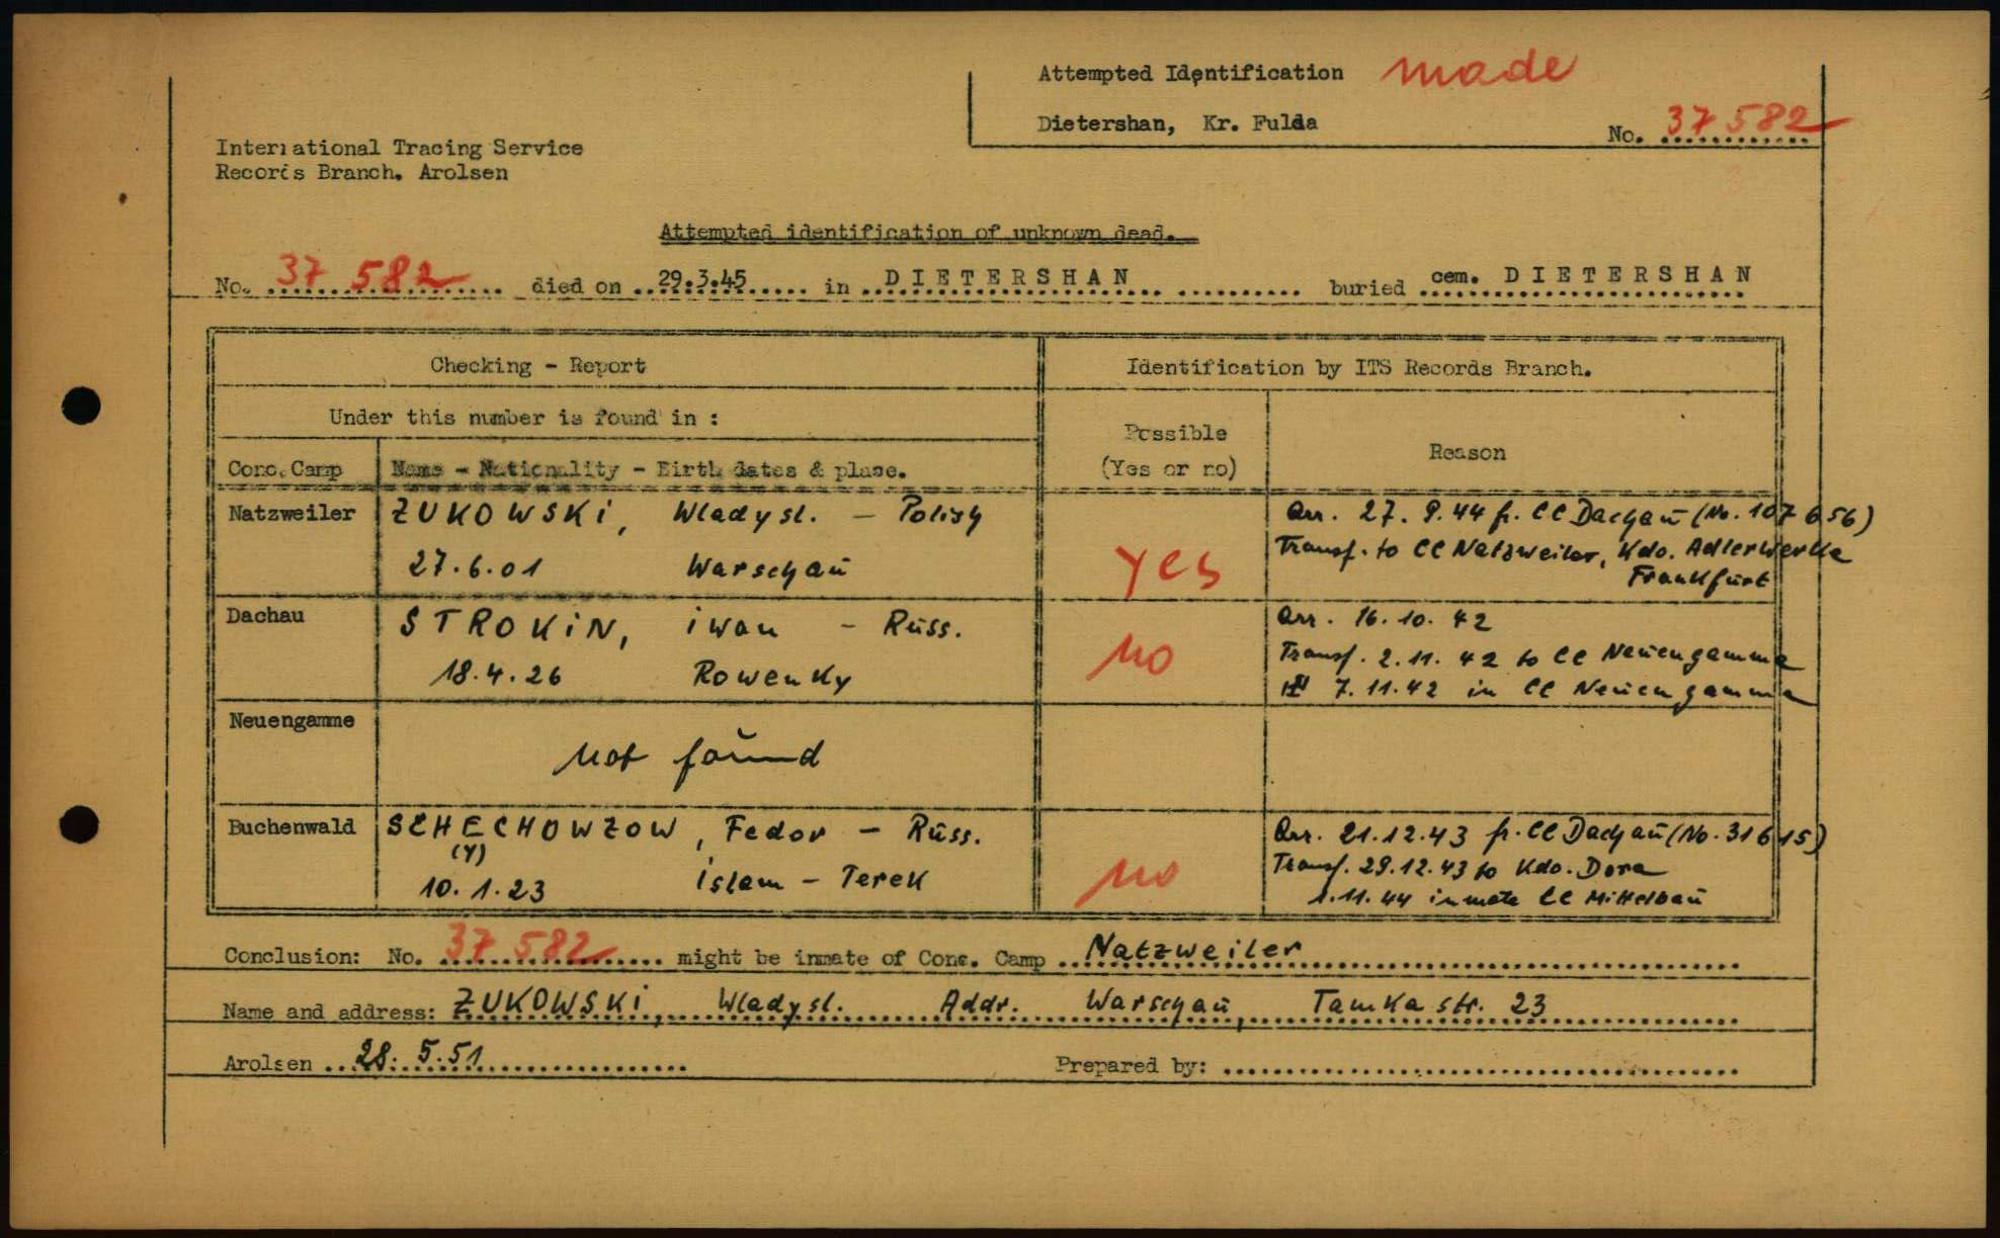 Attempted Identification made
Dietershan, Kr. Fulda
No. 37 582
International Tracing Service
Records Branch. Arolsen
Attempted identification of unknown dead.
No. 37 582 died on 29.3.45 in DIETERSHAN buried cem. DIETERSHAN
Checking - Report
Identification by ITS Records Branch.
Under this number is found in :
Possible
(Yes or no)
Reason
Conc. Camp
Name - Nationality - Birth dates & place.
Natzweiler
ZUKOWSKI, Wladysl. - Polish
27.6.01 Warschau
yes
Arr. 27. 9. 44 fr. CC Dachau (No. 107 656)
Transf. to CC Natzweiler, Kdo. Adlerwerke
Frankfurt
Dachau
STROKIN, Iwan - Russ.
18.4.26 Rowenky
no
Arr. 16. 10. 42
Transf. 2.11. 42 to CC Neuengamme
7.11.42 in CC Neuengamme
Neuengamme
not found
Buchenwald
SCHECHOWZOW, Fedor - Russ.
(Y)
10. 1. 23 Islam - Terek
no
Arr. 21.12.43 fr. CC Dachau (No. 31615)
Transf. 29.12.43 to Kdo. Dora
1.11.44 inmate CC Mittelbau
Conclusion: No. 37 582 might be inmate of Conc. Camp Natzweiler
Name and address: ZUKOWSKI, Wladysl. Addr. Warschau, Tamka str. 23
Arolsen 28. 5. 51
Prepared by: